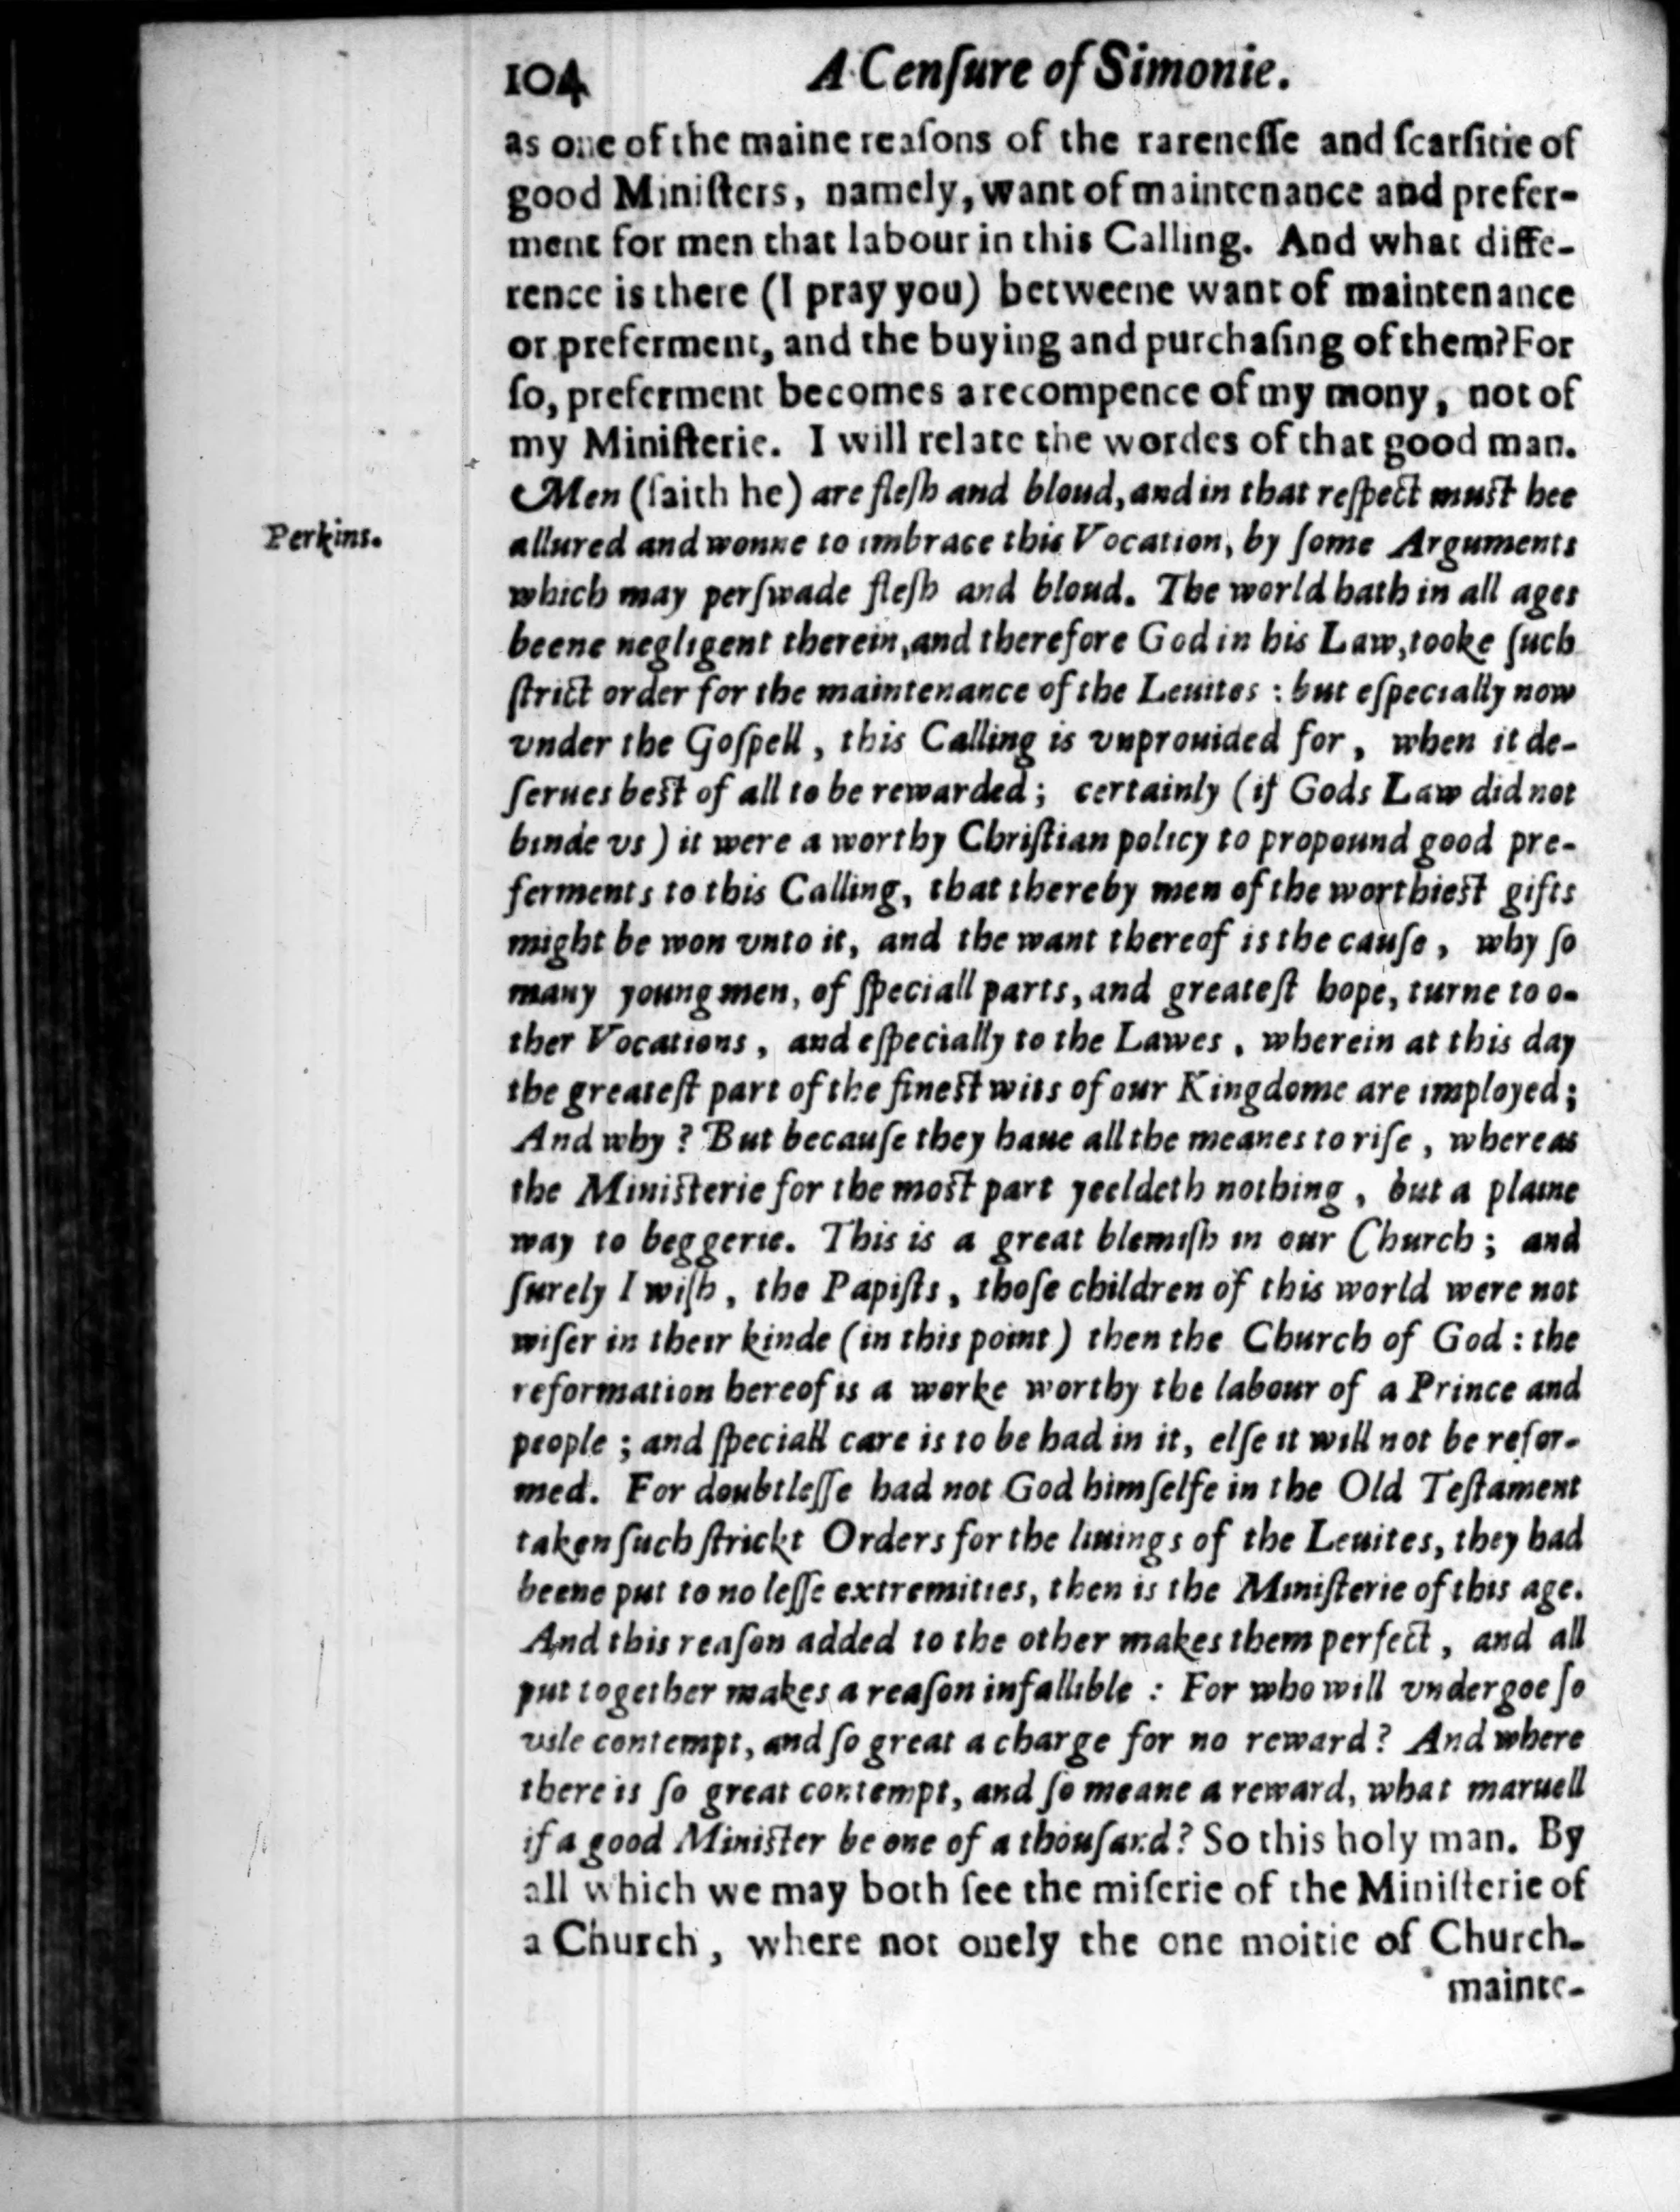 104 A Cenſure of Simonie.
as one of the maine reaſons of the rareneſſe and ſcarſitie of
good Miniſters, namely, want of maintenance and prefer-
ment for men that labour in this Calling. And what diffe-
rence is there (I pray you) betweene want of maintenance
or preferment, and the buying and purchaſing of them? For
ſo, preferment becomes a recompence of my mony, not of
my Miniſterie. I will relate the wordes of that good man.
Men (ſaith he) are fleſh and bloud, and in that reſpect muſt bee
Perkins.
allured and wonne to imbrace this Vocation, by ſome Arguments
which may perſwade fleſh and bloud. The world hath in all ages
beene negligent therein, and therefore God in his Law, tooke ſuch
ſtrict order for the maintenance of the Leuites : but eſpecially now
vnder the Goſpell, this Calling is vnprouided for, when it de-
ſerues beſt of all to be rewarded; certainly (if Gods Law did not
binde vs) it were a worthy Chriſtian policy to propound good pre-
ferments to this Calling, that thereby men of the worthieſt gifts
might be won vnto it, and the want thereof is the cauſe, why ſo
many young men, of ſpeciall parts, and greateſt hope, turne to o-
ther Vocations, and eſpecially to the Lawes, wherein at this day
the greateſt part of the fineſt wits of our Kingdome are imployed;
And why? But becauſe they haue all the meanes to riſe, whereas
the Miniſterie for the moſt part yeeldeth nothing, but a plaine
way to beggerie. This is a great blemiſh in our Church; and
ſurely I wiſh, the Papiſts, thoſe children of this world were not
wiſer in their kinde (in this point) then the Church of God : the
reformation hereof is a worke worthy the labour of a Prince and
people; and ſpeciall care is to be had in it, elſe it will not be refor-
med. For doubtleſſe had not God himſelfe in the Old Teſtament
taken ſuch ſtrickt Orders for the liuings of the Leuites, they had
beene put to no leſſe extremities, then is the Miniſterie of this age.
And this reaſon added to the other makes them perfect, and all
put together makes a reaſon infallible : For who will vndergoe ſo
vile contempt, and ſo great a charge for no reward? And where
there is ſo great contempt, and ſo meane a reward, what maruell
if a good Miniſter be one of a thouſand? So this holy man. By
all which we may both ſee the miſerie of the Miniſterie of
a Church, where not onely the one moitie of Church-
mainte-